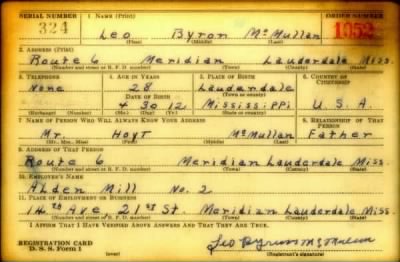 SERIAL NUMBER 1. NAME (Print) ORDER NUMBER
324 Leo Byron McMullan 1052
(First) (Middle) (Last)
2. ADDRESS (Print)
Route 6 Meridian Lauderdale Miss.
(Number and street or R. F. D. number) (Town) (County) (State)
3. TELEPHONE 4. AGE IN YEARS 5. PLACE OF BIRTH 6. COUNTRY OF CITIZENSHIP
None 28 Lauderdale
DATE OF BIRTH (Town or county)
4 30 12 Mississippi U. S. A.
(Exchange) (Number) (Mo.) (Day) (Yr.) (State or country)
7. NAME OF PERSON WHO WILL ALWAYS KNOW YOUR ADDRESS 8. RELATIONSHIP OF THAT PERSON
Mr. Hoyt McMullan Father
(Mr., Mrs., Miss) (First) (Middle) (Last)
9. ADDRESS OF THAT PERSON
Route 6 Meridian Lauderdale Miss.
(Number and street or R. F. D. number) (Town) (County) (State)
10. EMPLOYER'S NAME
Alden Mill No. 2
11. PLACE OF EMPLOYMENT OR BUSINESS
14th Ave 21st St. Meridian Lauderdale Miss.
(Number and street or R. F. D. number) (Town) (County) (State)
I AFFIRM THAT I HAVE VERIFIED ABOVE ANSWERS AND THAT THEY ARE TRUE.
REGISTRATION CARD
D. S. S. Form 1 Leo Byron McMullan
(Registrant's signature)